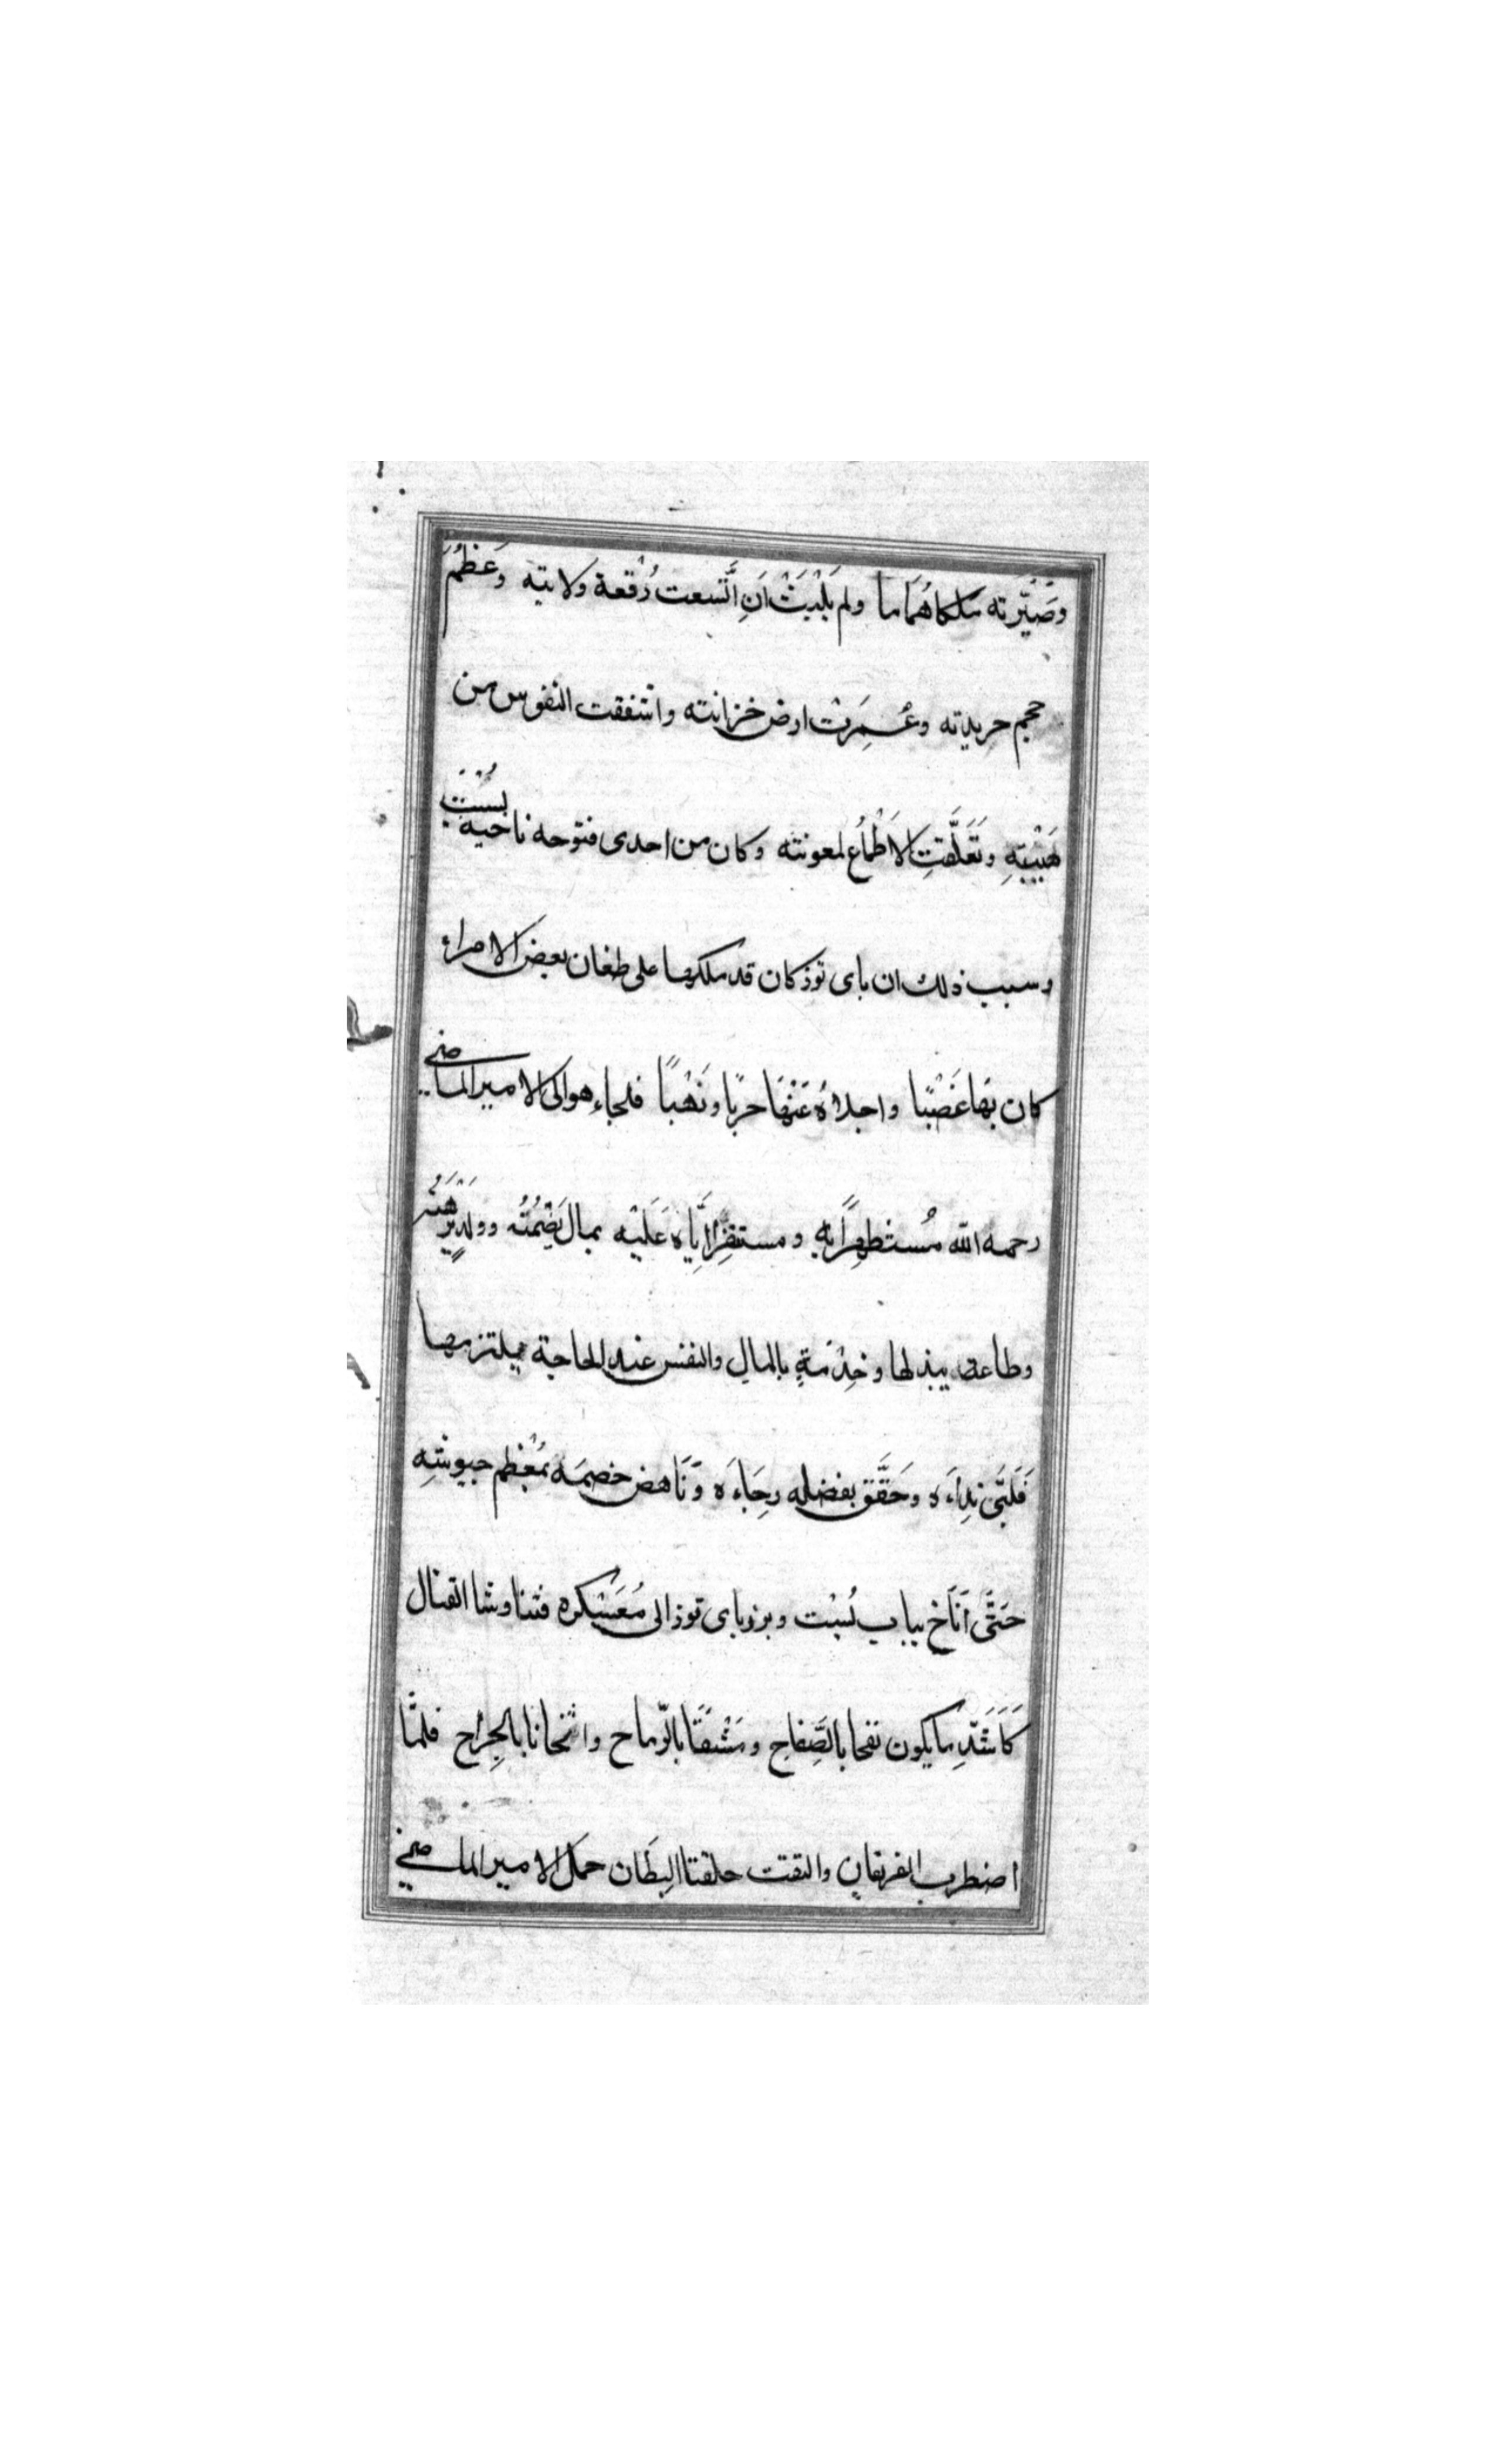 وصَيَّرته مَلكاهُمَاما ولم يَلْبَثْ اَنِ اتَّسعت رُقْعة ولايته وَعَظُمَ
حجم حريدته وعُمِرَتْ ارض خزانته واشفقت النفوس من
هَيْبَتِهِ وتَعَلَّقتِ الاَطْمَاعُ لمعونته وكان من احدى فتوحه ناحية بُسْتٍ
وسبب ذلك ان باى توز كان قد ملكها على طغان بعض الامراء
كان بهَا غَصْبًا واجلاهُ عَنْهَا حربًا ونَهْبًا فلجاء هو الى الامير الماضى
رحمه الله مُستظهِرًا بهِ ومستفِزًّا اِيَّاه عَلَيْه بمال يَضْمُنُه وولدٍ يَرْهَنُه
وطاعة يبذلها وخِدْمَةٍ بالمال والنفس عند الحاجة يلتزمها
فَلَبَّى نِداءَه وحَقَّق بفضله رجَاءَه وَنَاهض خصمَه بمُعْظم جيوشِهِ
حَتَّى اَنَاخ بباب بُسْت وبرز باى توز الى مُعَسْكره فتناوشا القتال
كَاَشَدِّ ما يكون نفحا بالصِّفاح ومَشْقًا بالرّماح واثخانا بالجِراح فلمَّا
اضطرب الفريقان والتقت حلقتا البِطَان حمل الامير الماضى